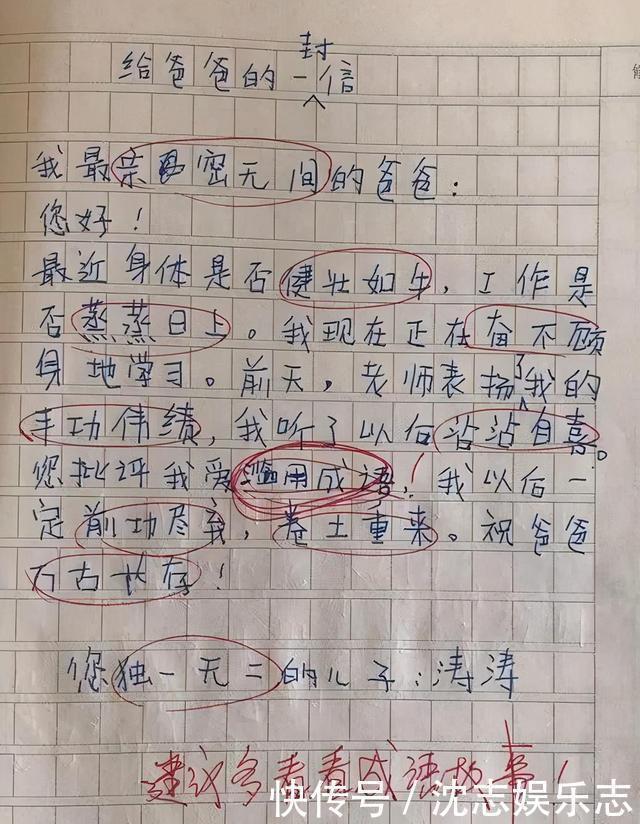 封
给爸爸的一信
我最亲密无间的爸爸：
您好！
最近身体是否健壮如牛，工作是
否蒸蒸日上。我现在正在奋不顾
身地学习。前天，老师表扬了我的
丰功伟绩，我听了以后沾沾自喜。
您批评我爱滥用成语！我以后一
定前功尽弃，卷土重来。祝爸爸
万古长存！
您独一无二的儿子：涛涛
建议多看看成语故事！
快传号／沈志娱乐志